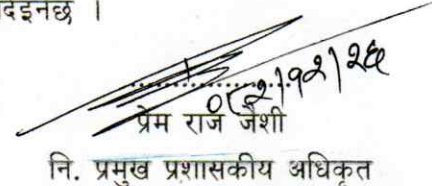 दिइनेछ ।
..................
०८२|१२|२६
प्रेम राज जैशी
नि. प्रमुख प्रशासकीय अधिकृत